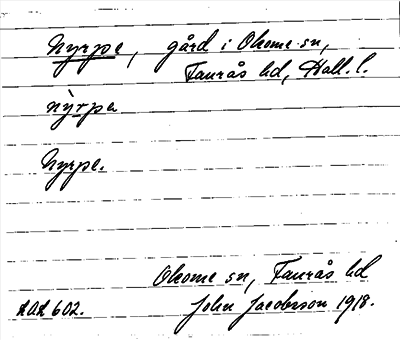 Nyrpe, gård i Okome sn,
Faurås hd, Hall. l.
nỳrpa
Nyrpe.
Okome sn, Faurås hd
LAL 602. John Jacobsson 1918.